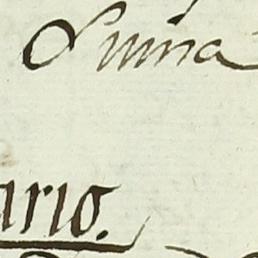 Suma
ario.